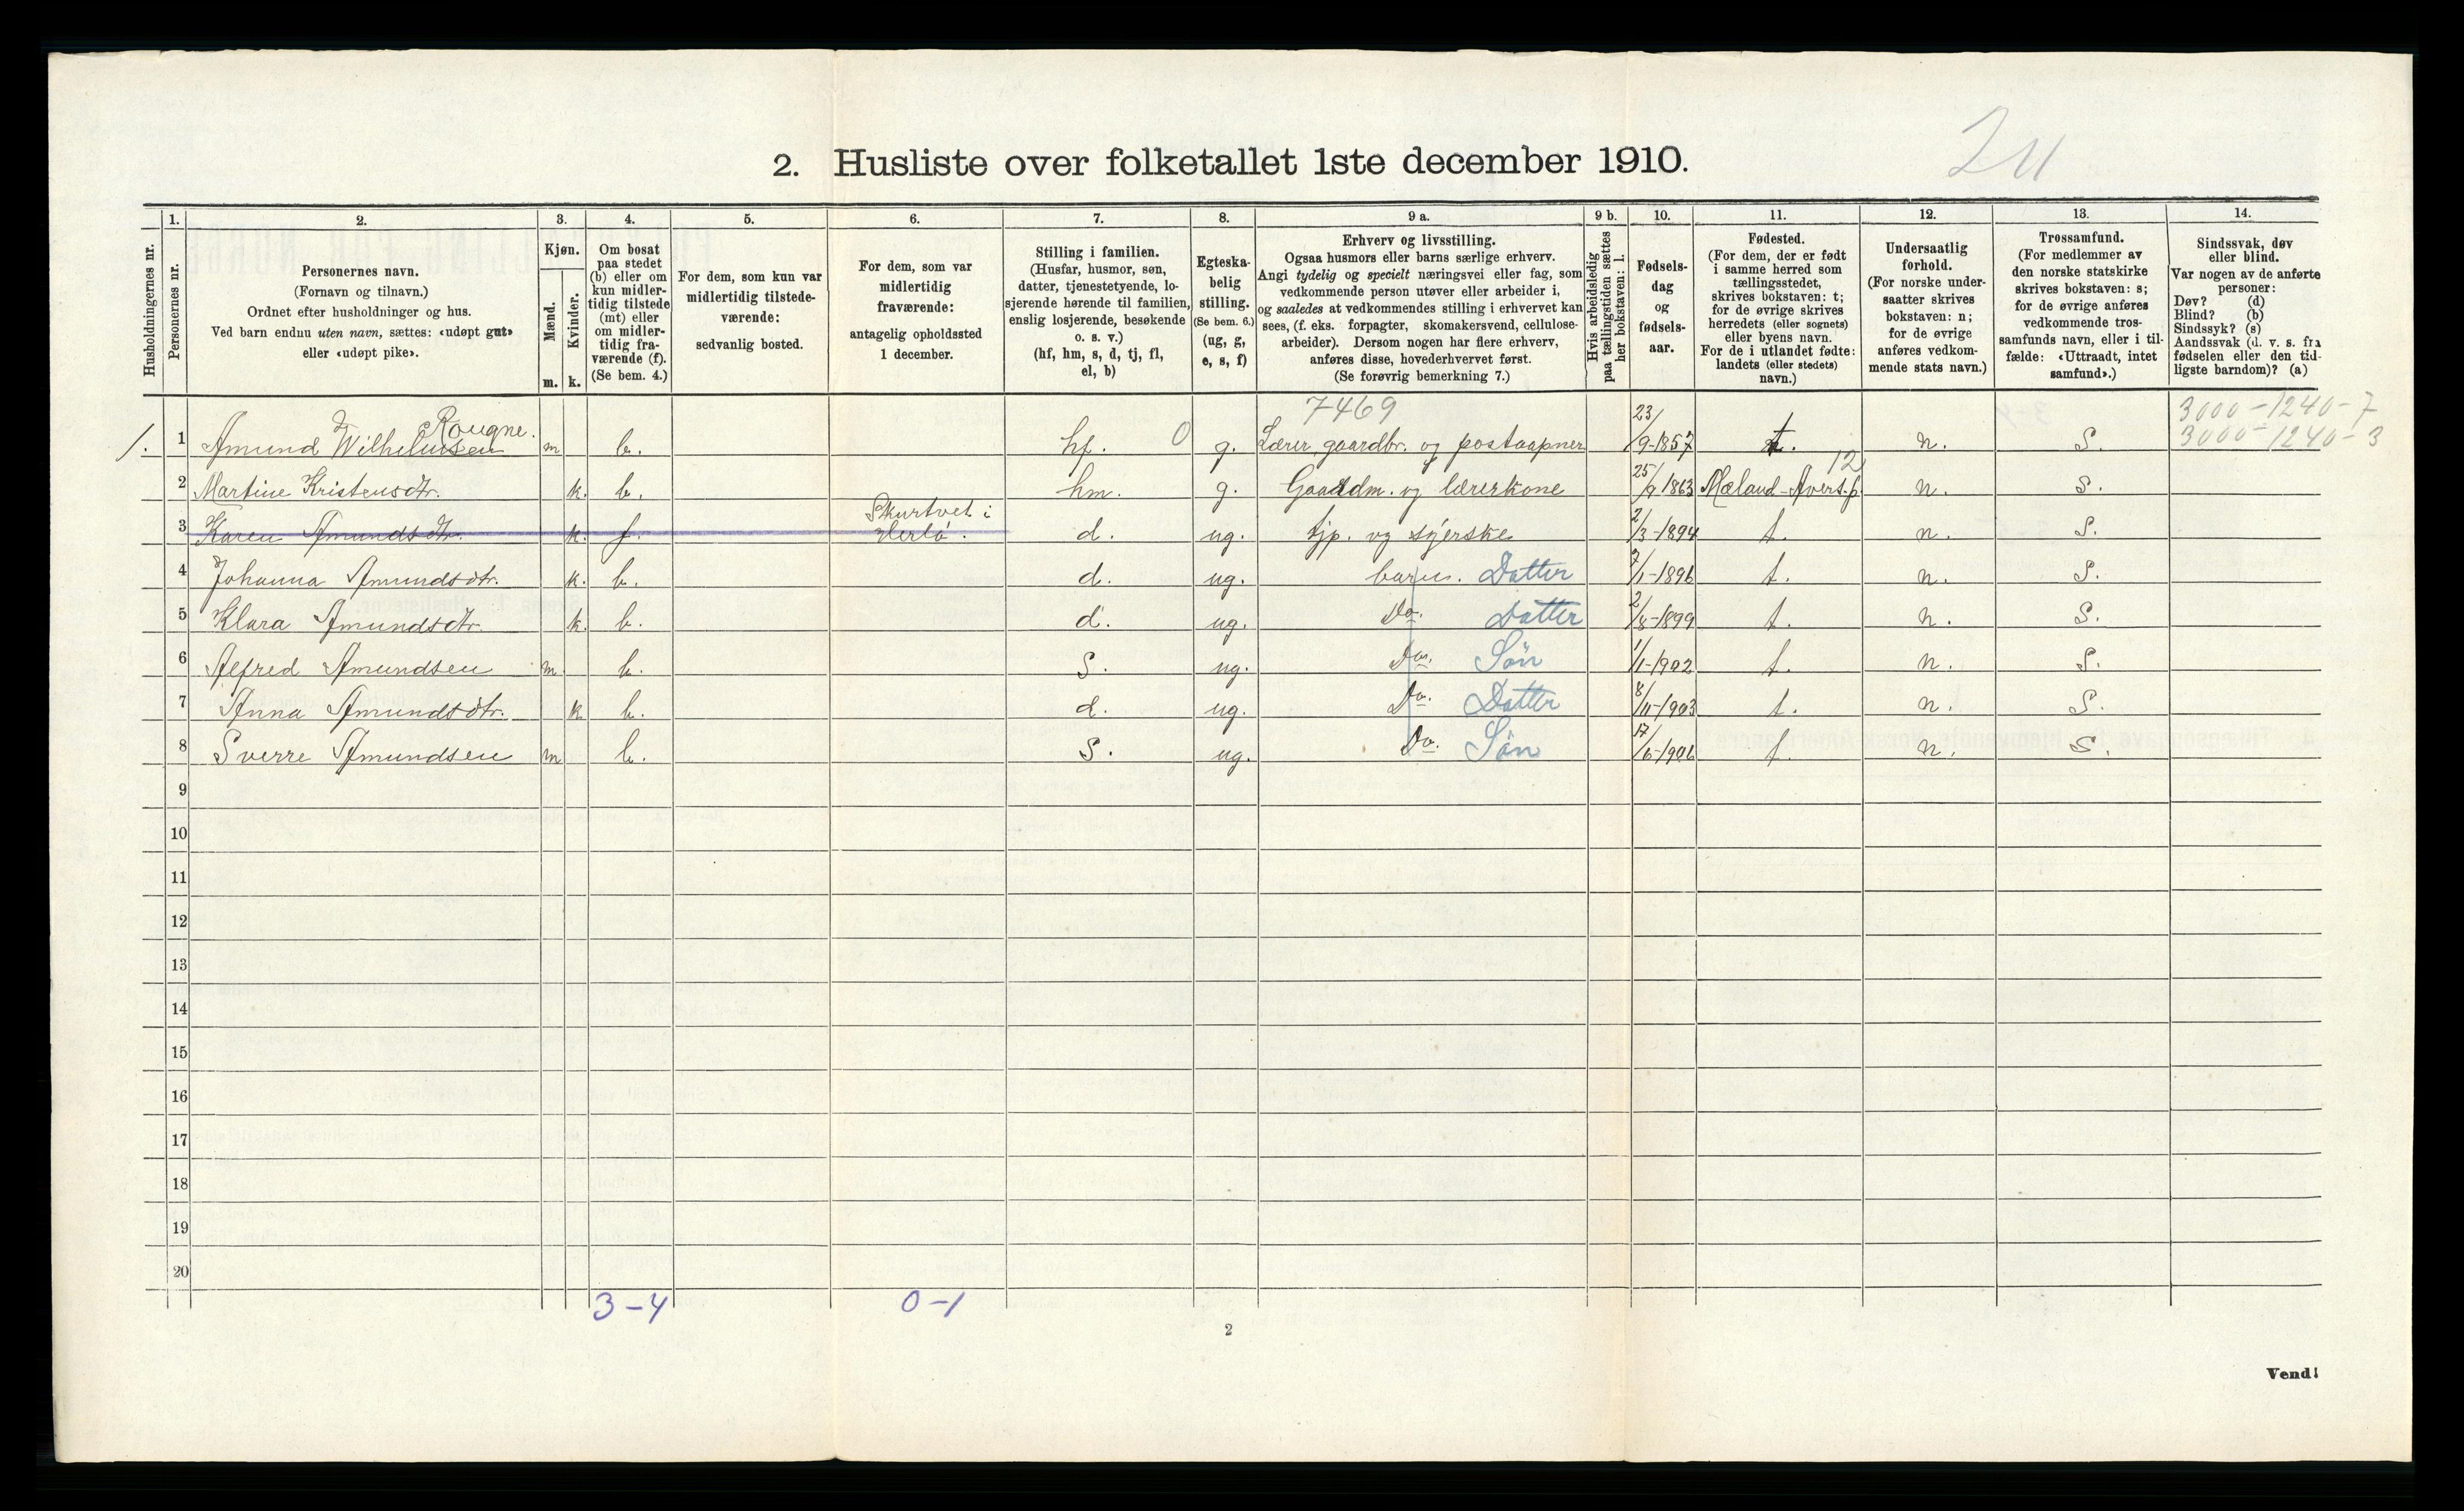 2. Husliste over folketallet 1ste december 1910.
1. 2. 3. 4. 5. 6. 7. 8. 9 a. 9 b. 10. 11. 12. 13. 14.
Husholdningernes nr.
Personernes nr.
Personernes navn.
(Fornavn og tilnavn.)
Ordnet efter husholdninger og hus.
Ved barn endnu uten navn, sættes: «udøpt gut»
eller «udøpt pike».
Kjøn.
Mænd.
Kvinder.
m. k.
Om bosat
paa stedet
(b) eller om
kun midler-
tidig tilstede
(mt) eller
om midler-
tidig fra-
værende (f).
(Se bem. 4.)
For dem, som kun var
midlertidig tilstede-
værende:
sedvanlig bosted.
For dem, som var
midlertidig
fraværende:
antagelig opholdssted
1 december.
Stilling i familien.
(Husfar, husmor, søn,
datter, tjenestetyende, lo-
sjerende hørende til familien,
enslig losjerende, besøkende
o. s. v.)
(hf, hm, s, d, tj, fl,
el, b)
Egteska-
belig
stilling.
(Se bem. 6.)
(ug, g,
e, s, f)
Erhverv og livsstilling.
Ogsaa husmors eller barns særlige erhverv.
Angi tydelig og specielt næringsvei eller fag, som
vedkommende person utøver eller arbeider i,
og saaledes at vedkommendes stilling i erhvervet kan
sees, (f. eks. forpagter, skomakersvend, cellulose-
arbeider). Dersom nogen har flere erhverv,
anføres disse, hovederhvervet først.
(Se forøvrig bemerkning 7.)
Hvis arbeidsledig
paa tællingstiden sættes
her bokstaven: l.
Fødsels-
dag
og
fødsels-
aar.
Fødested.
(For dem, der er født
i samme herred som
tællingsstedet,
skrives bokstaven: t;
for de øvrige skrives
herredets (eller sognets)
eller byens navn.
For de i utlandet fødte:
landets (eller stedets)
navn.)
Undersaatlig
forhold.
(For norske under-
saatter skrives
bokstaven: n;
for de øvrige
anføres vedkom-
mende stats navn.)
Trossamfund.
(For medlemmer av
den norske statskirke
skrives bokstaven: s;
for de øvrige anføres
vedkommende tros-
samfunds navn, eller i til-
fælde: «Uttraadt, intet
samfund».)
Sindssvak, døv
eller blind.
Var nogen av de anførte
personer:
Døv? (d)
Blind? (b)
Sindssyk? (s)
Aandssvak (d. v. s. fra
fødselen eller den tid-
ligste barndom)? (a)
7469 3000-1240-7
Rougne. 3000-1240-3
1. 1 Amund Wilhelmsen m b. hf. 0 g. Lærer, gaardbr. og postaapner 23/9-1857 t. n. S.
12
2 Martine Kristensdtr. k. b. hm. g. Gaardm. og lærerkone 25/9 1863 n. S.
3 Karen Amundsdtr. k. f. Skurtvet i Herlø. d. ug. tjp. og syerske 2/3-1894 t. n. S.
4 Johanna Amundsdtr. k. b. d. ug. barn. Datter 7/1-1896 t. n. S.
5 Klara Amundsdtr. k. b. d. ug. Do. Datter 2/8-1899 t. n. S.
6 Alfred Amundsen m. b. S. ug. Do. Søn 1/1-1902 t. n. S.
7 Anna Amundsdtr. k b. d. ug. Do. Datter 8/11-1903 t. n. S.
8 Sverre Amundsen m b. S. ug. Do. Søn 17/6-1906 t. n. S.
9
10
11
12
13
14
15
16
17
18
19
20
3-4 0-1
2
Vend!